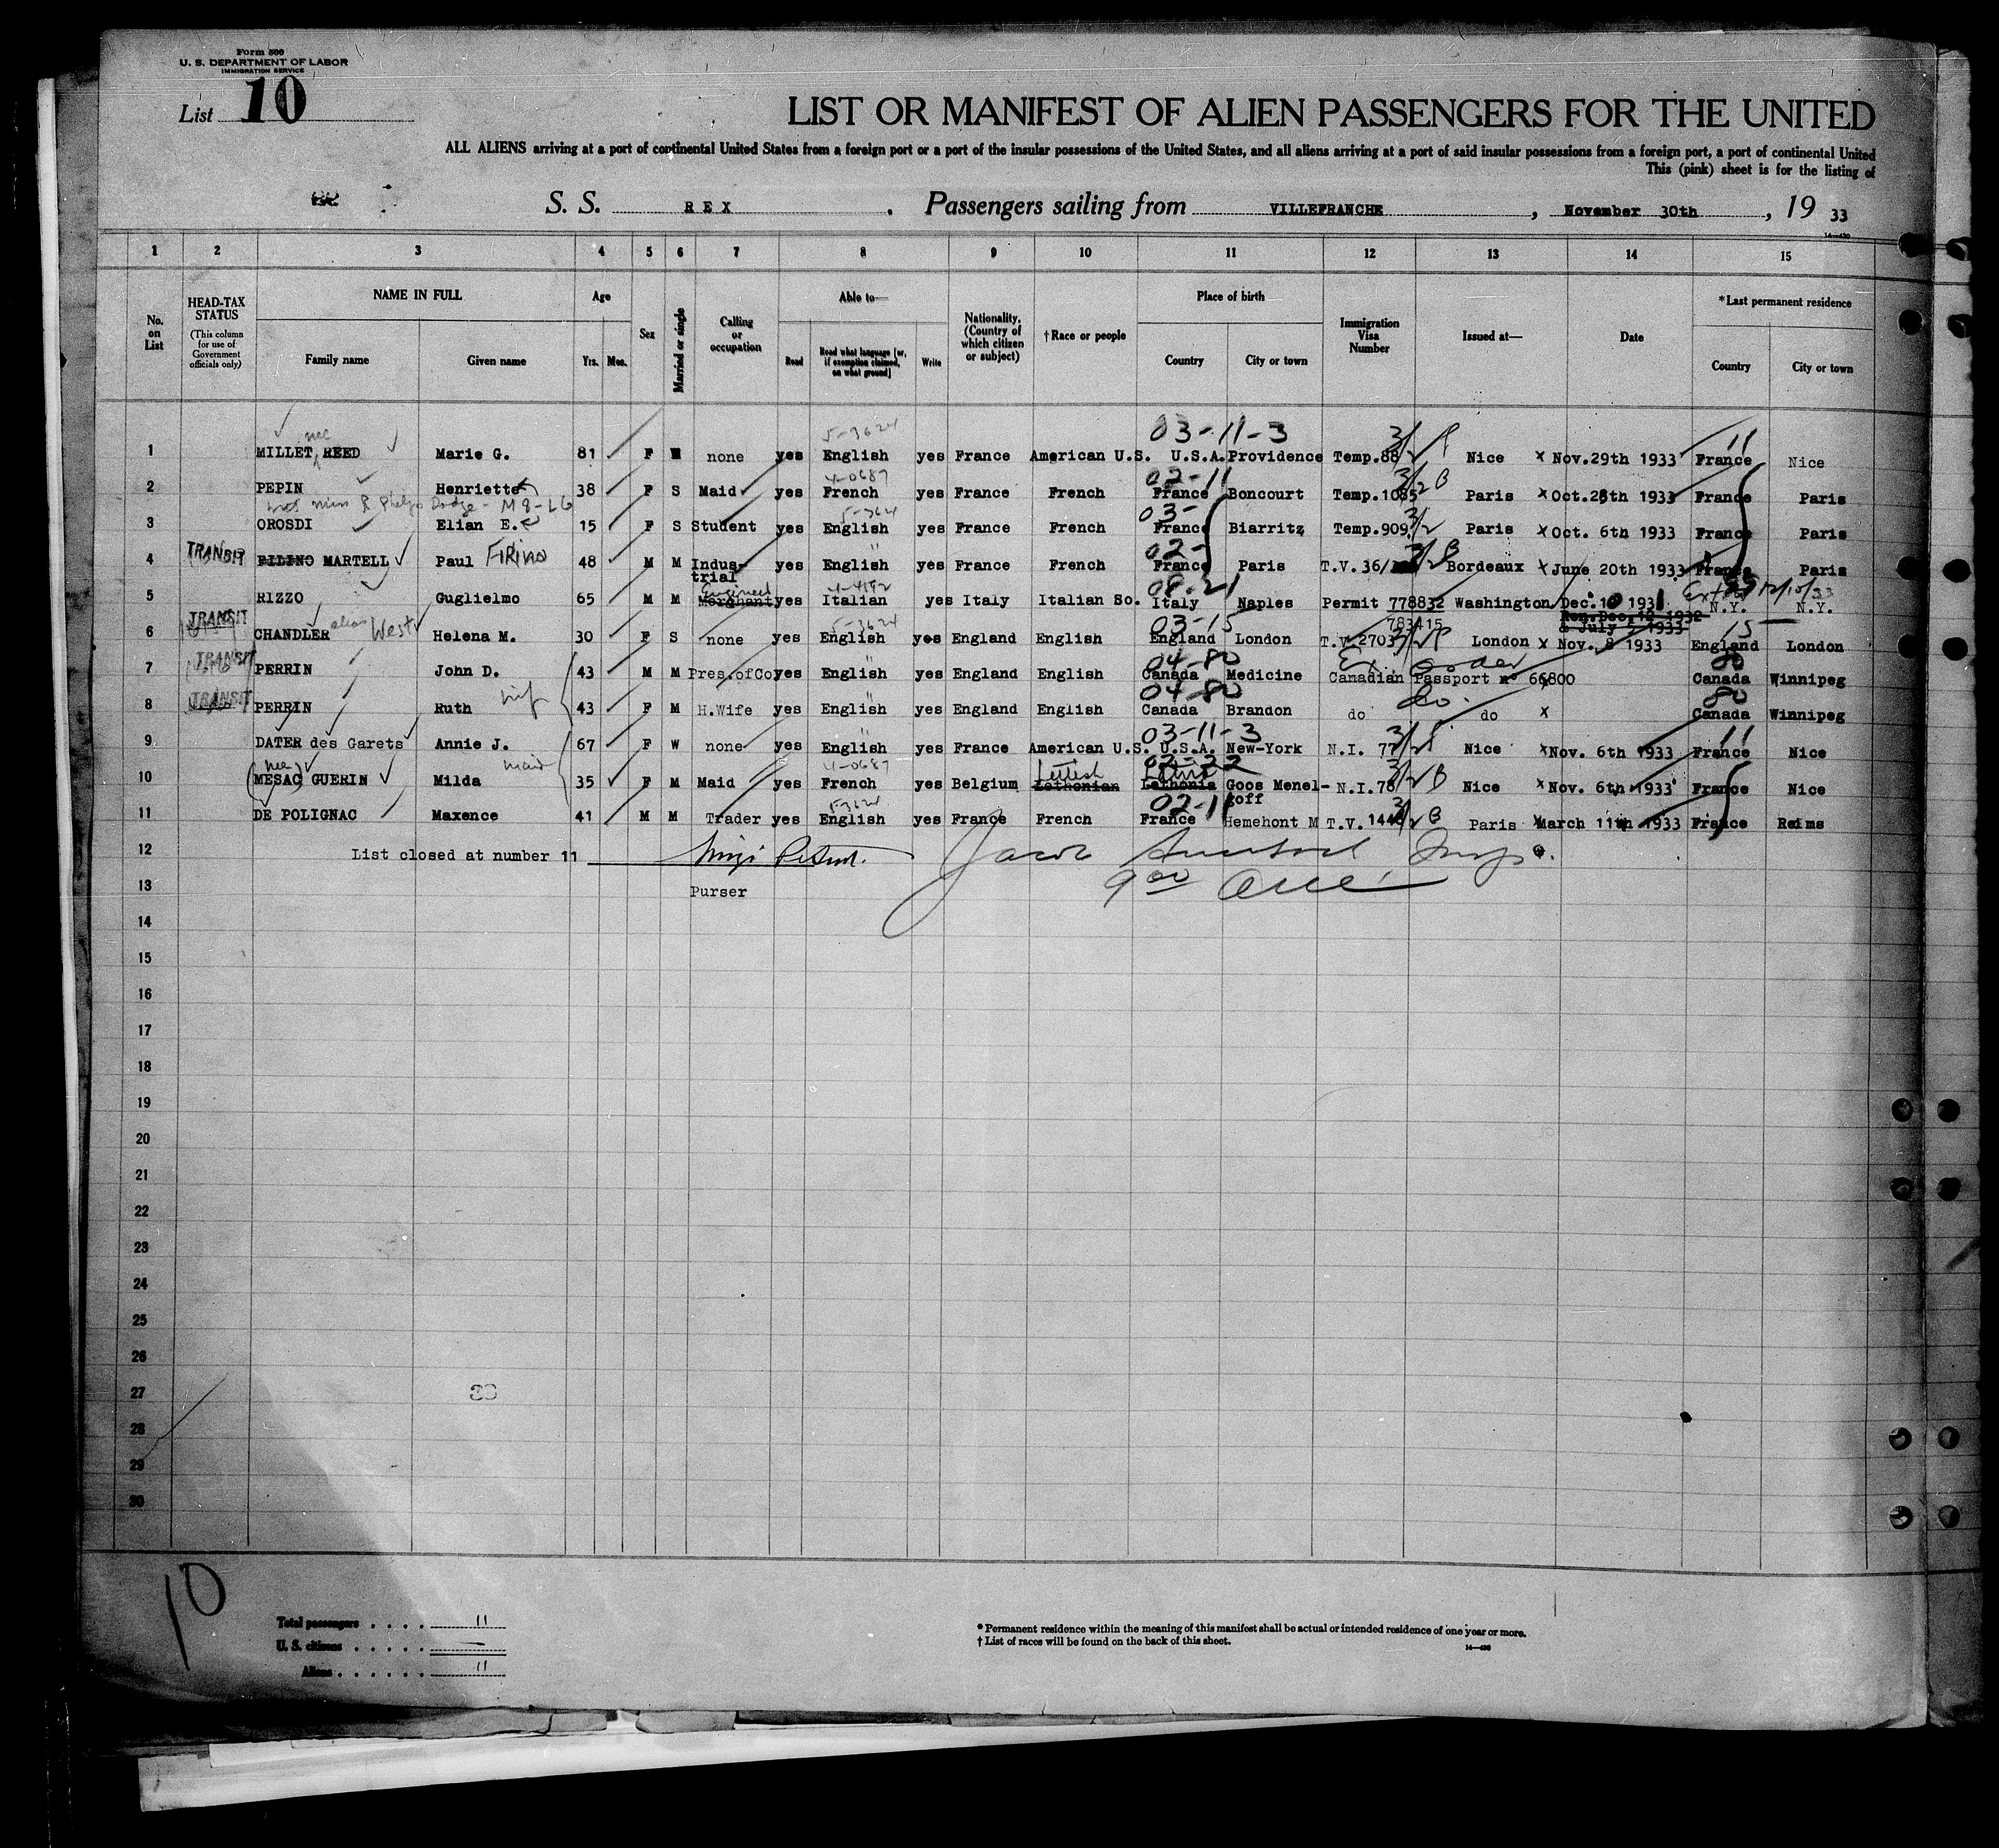 Form 500
U. S. DEPARTMENT OF LABOR
IMMIGRATION SERVICE
List 10
LIST OR MANIFEST OF ALIEN PASSENGERS FOR THE UNITED
ALL ALIENS arriving at a port of continental United States from a foreign port or a port of the insular possessions of the United States, and all aliens arriving at a port of said insular possessions from a foreign port, a port of continental United
This (pink) sheet is for the listing of
S. S. REX. Passengers sailing from VILLEFRANCHE, November 30th, 19 33
1 2 3 4 5 6 7 8 9 10 11 12 13 14 15
No. on List
HEAD-TAX STATUS (This column for use of Government officials only)
NAME IN FULL Family name Given name
Age Yrs. Mos.
Sex
Married or single
Calling or occupation
Able to— Read Read what language [or, if exemption claimed, on what ground] Write
Nationality. (Country of which citizen or subject)
†Race or people
Place of birth Country City or town
Immigration Visa Number
Issued at—
Date
*Last permanent residence Country City or town
03-11-3
1 MILLET nee REED Marie G. 81 F W none yes English yes France American U.S. U.S.A. Providence Temp.88 Nice x Nov.29th 1933 France Nice
02-11
2 PEPIN Henriette 38 F S Maid yes French yes France French France Boncourt Temp.1085 Paris x Oct.28th 1933 France Paris
3 OROSDI Elian E. 15 F S Student yes English yes France French France Biarritz Temp.909 Paris x Oct. 6th 1933 France Paris
4 TRANSIT FILINO MARTELL Paul FIRINO 48 M M Industrial yes English yes France French France Paris T.V.36/ Bordeaux x June 20th 1933 France Paris
08-21
5 RIZZO Guglielmo 65 M M Merchant Engineer yes Italian yes Italy Italian So. Italy Naples Permit 778832 Washington Dec.10 1931 N.Y. N.Y.
783415 Ren.Dec.12 1932 & July 5 1933
03-15
6 TRANSIT CHANDLER alias West Helena M. 30 F S none yes English yes England English England London T.V.2703 London x Nov. 8 1933 England London
04-80
7 TRANSIT PERRIN John D. 43 M M Pres.ofCo yes English yes England English Canada Medicine Canadian Passport nº 66800 Canada Winnipeg
04-80
8 TRANSIT PERRIN Ruth wife 43 F M H.Wife yes English yes England English Canada Brandon do do x Canada Winnipeg
03-11-3
9 DATER des Garets Annie J. 67 F W none yes English yes France American U.S. U.S.A. New-York N.I. 77 Nice x Nov. 6th 1933 France Nice
10 (nee) MESAC GUERIN Milda maid 35 F M Maid yes French yes Belgium Lethonian Lettish Lethonia Goos Menelgoff N.I.78 Nice x Nov. 6th 1933 France Nice
02-11
11 DE POLIGNAC Maxence 41 M M Trader yes English yes France French France Hemehont M T.V.144 Paris x March 11th 1933 France Reims
12 List closed at number 11
13 Purser
14
15
16
17
18
19
20
21
22
23
24
25
26
27
28
29
30
10
Total passengers . . . . 11
U. S. citizens . . . . . —
Aliens . . . . . . 11
* Permanent residence within the meaning of this manifest shall be actual or intended residence of one year or more.
† List of races will be found on the back of this sheet.